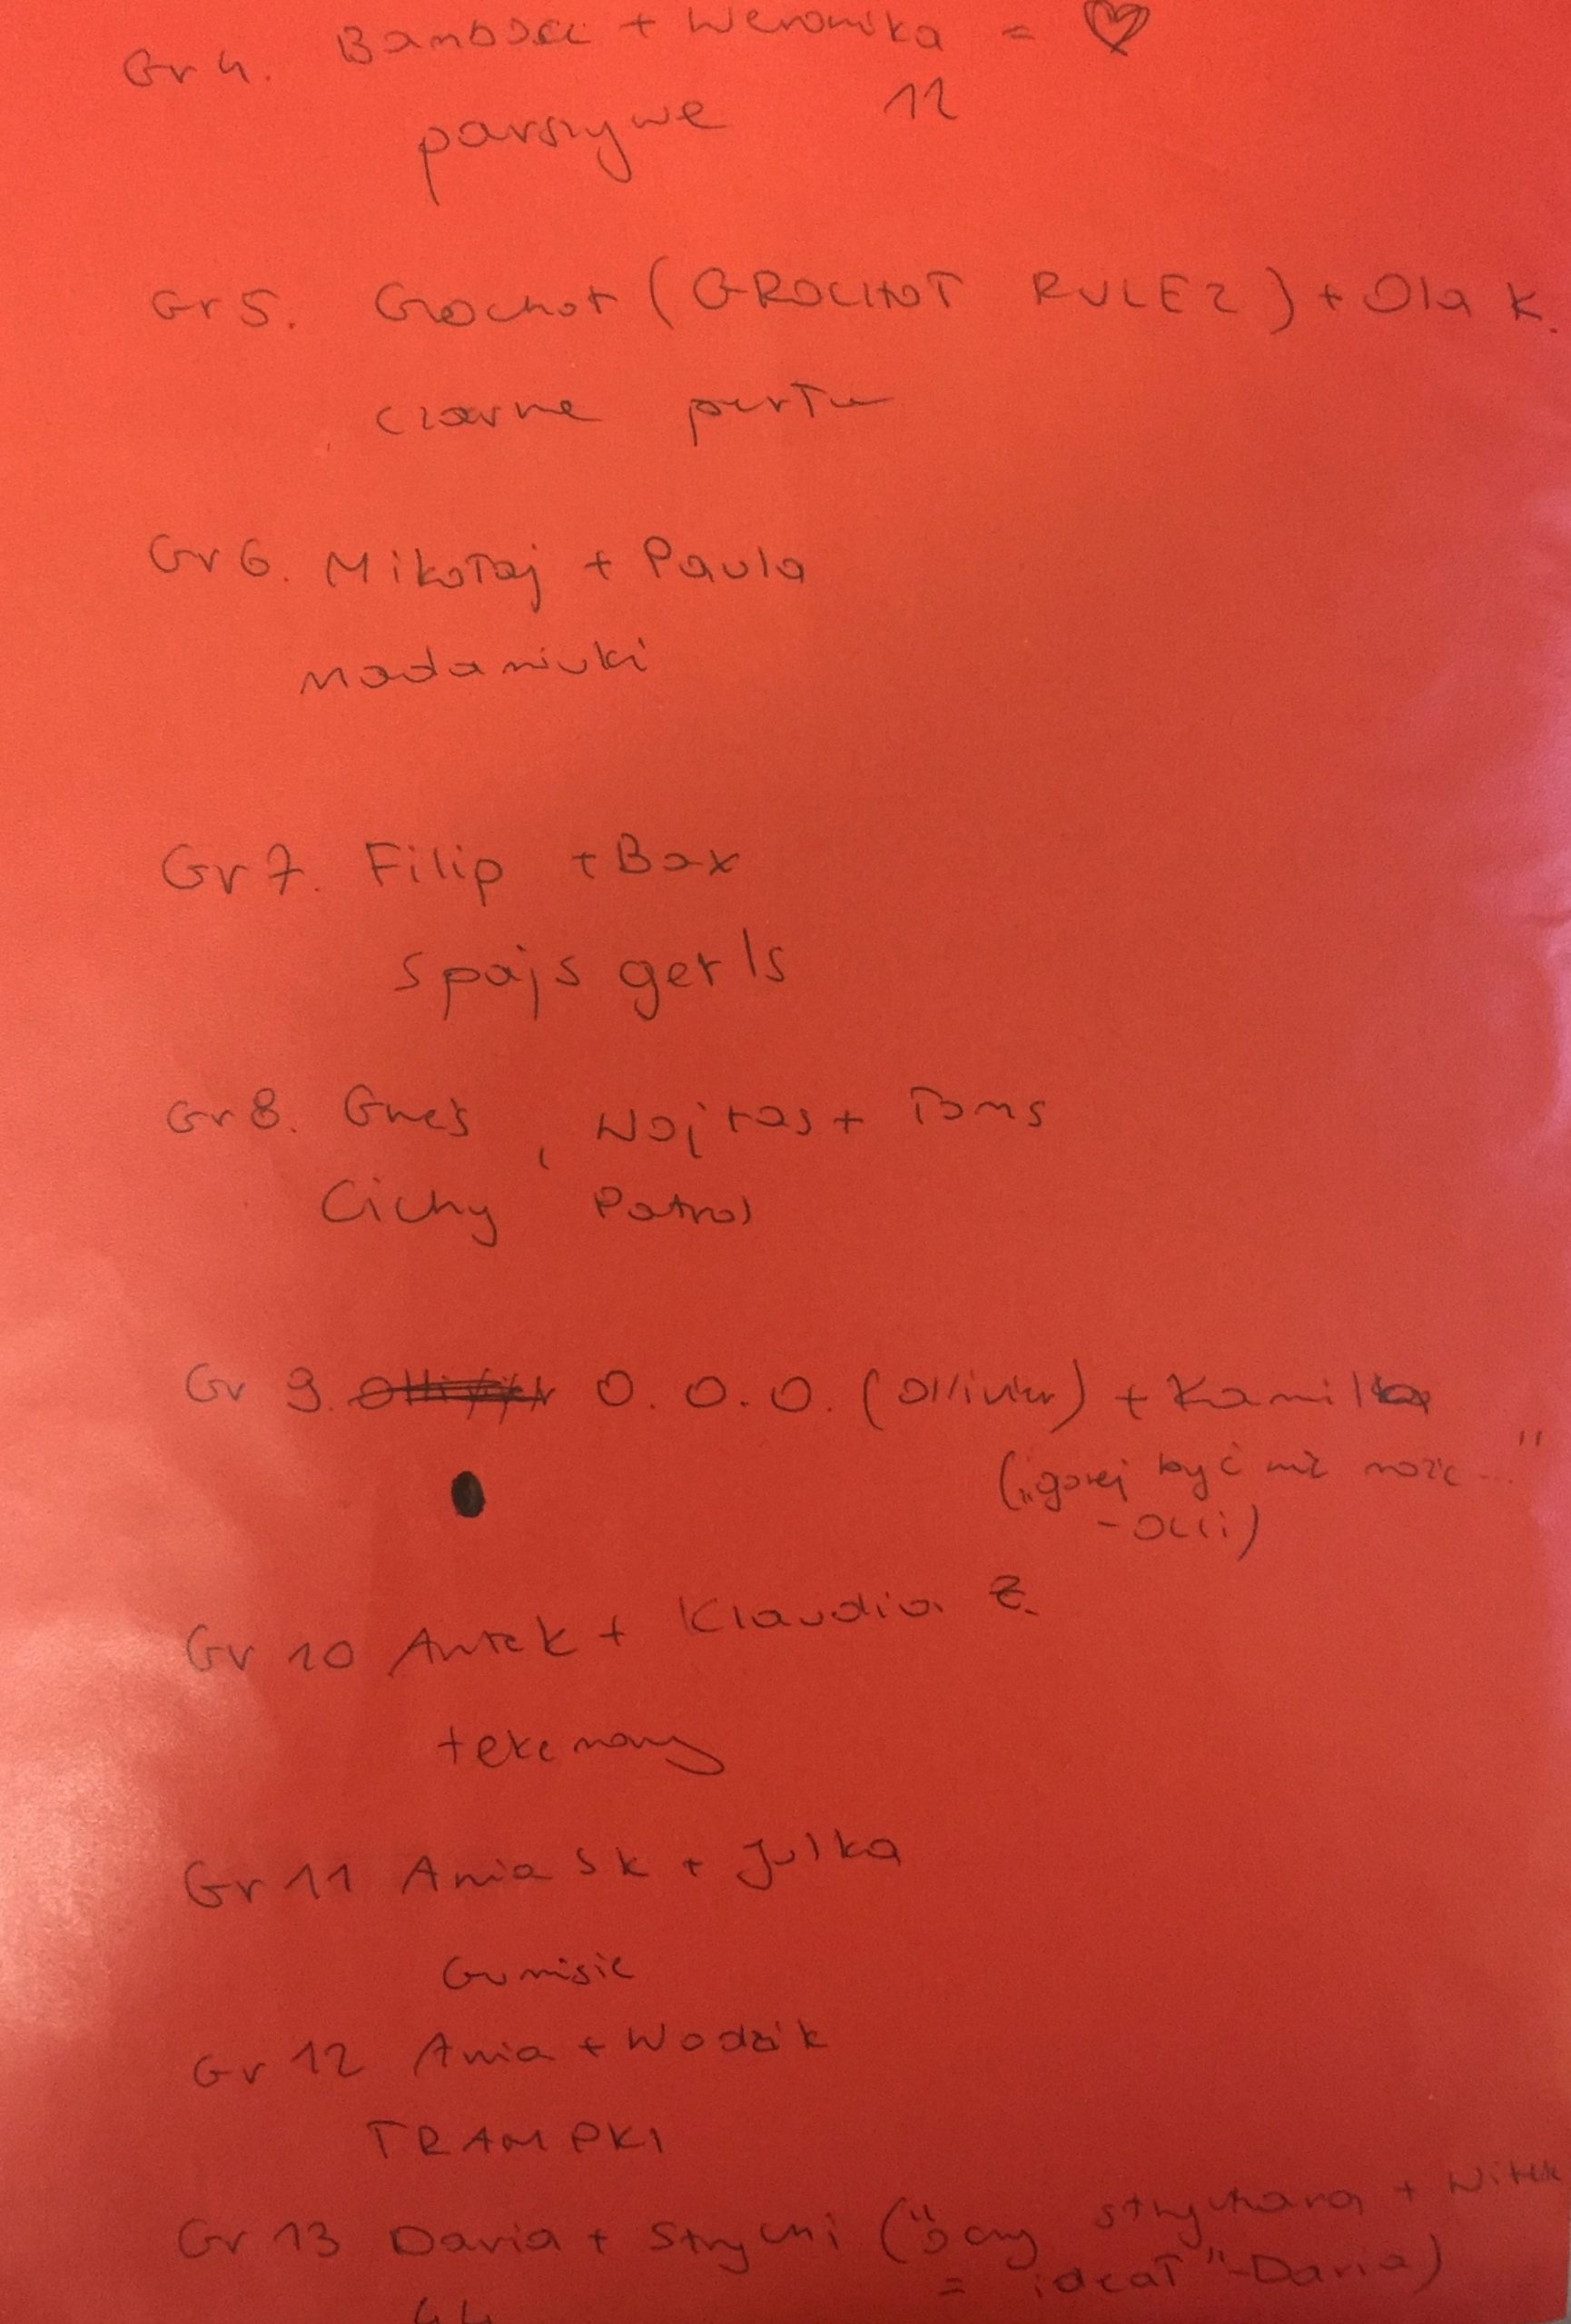 Gr 4. Bambosz + Weronika = ♡
parszywe 12
Gr 5. Grochot (GROCHOT RULEZ) + Ola K.
czarne
Gr 6. Mikołaj + Paula
madaniuki
Gr 7. Filip + Bax
spajs gerls
Gr 8. Gneś, Wojtas + Toms
Cichy Patrol
Gr 9. O. O. O. (Ollivier) + Kamilka
("gorzej być nie może..."
- Olli)
Gr 10 Antek + Klaudia Z.
tekemany
Gr 11 Ania Sk + Julka
Gumisie
Gr 12 Ania + Wodzik
TRAMPKI
Gr 13 Daria + Strychi ("oczy strychara + Witek
= ideał" - Daria)